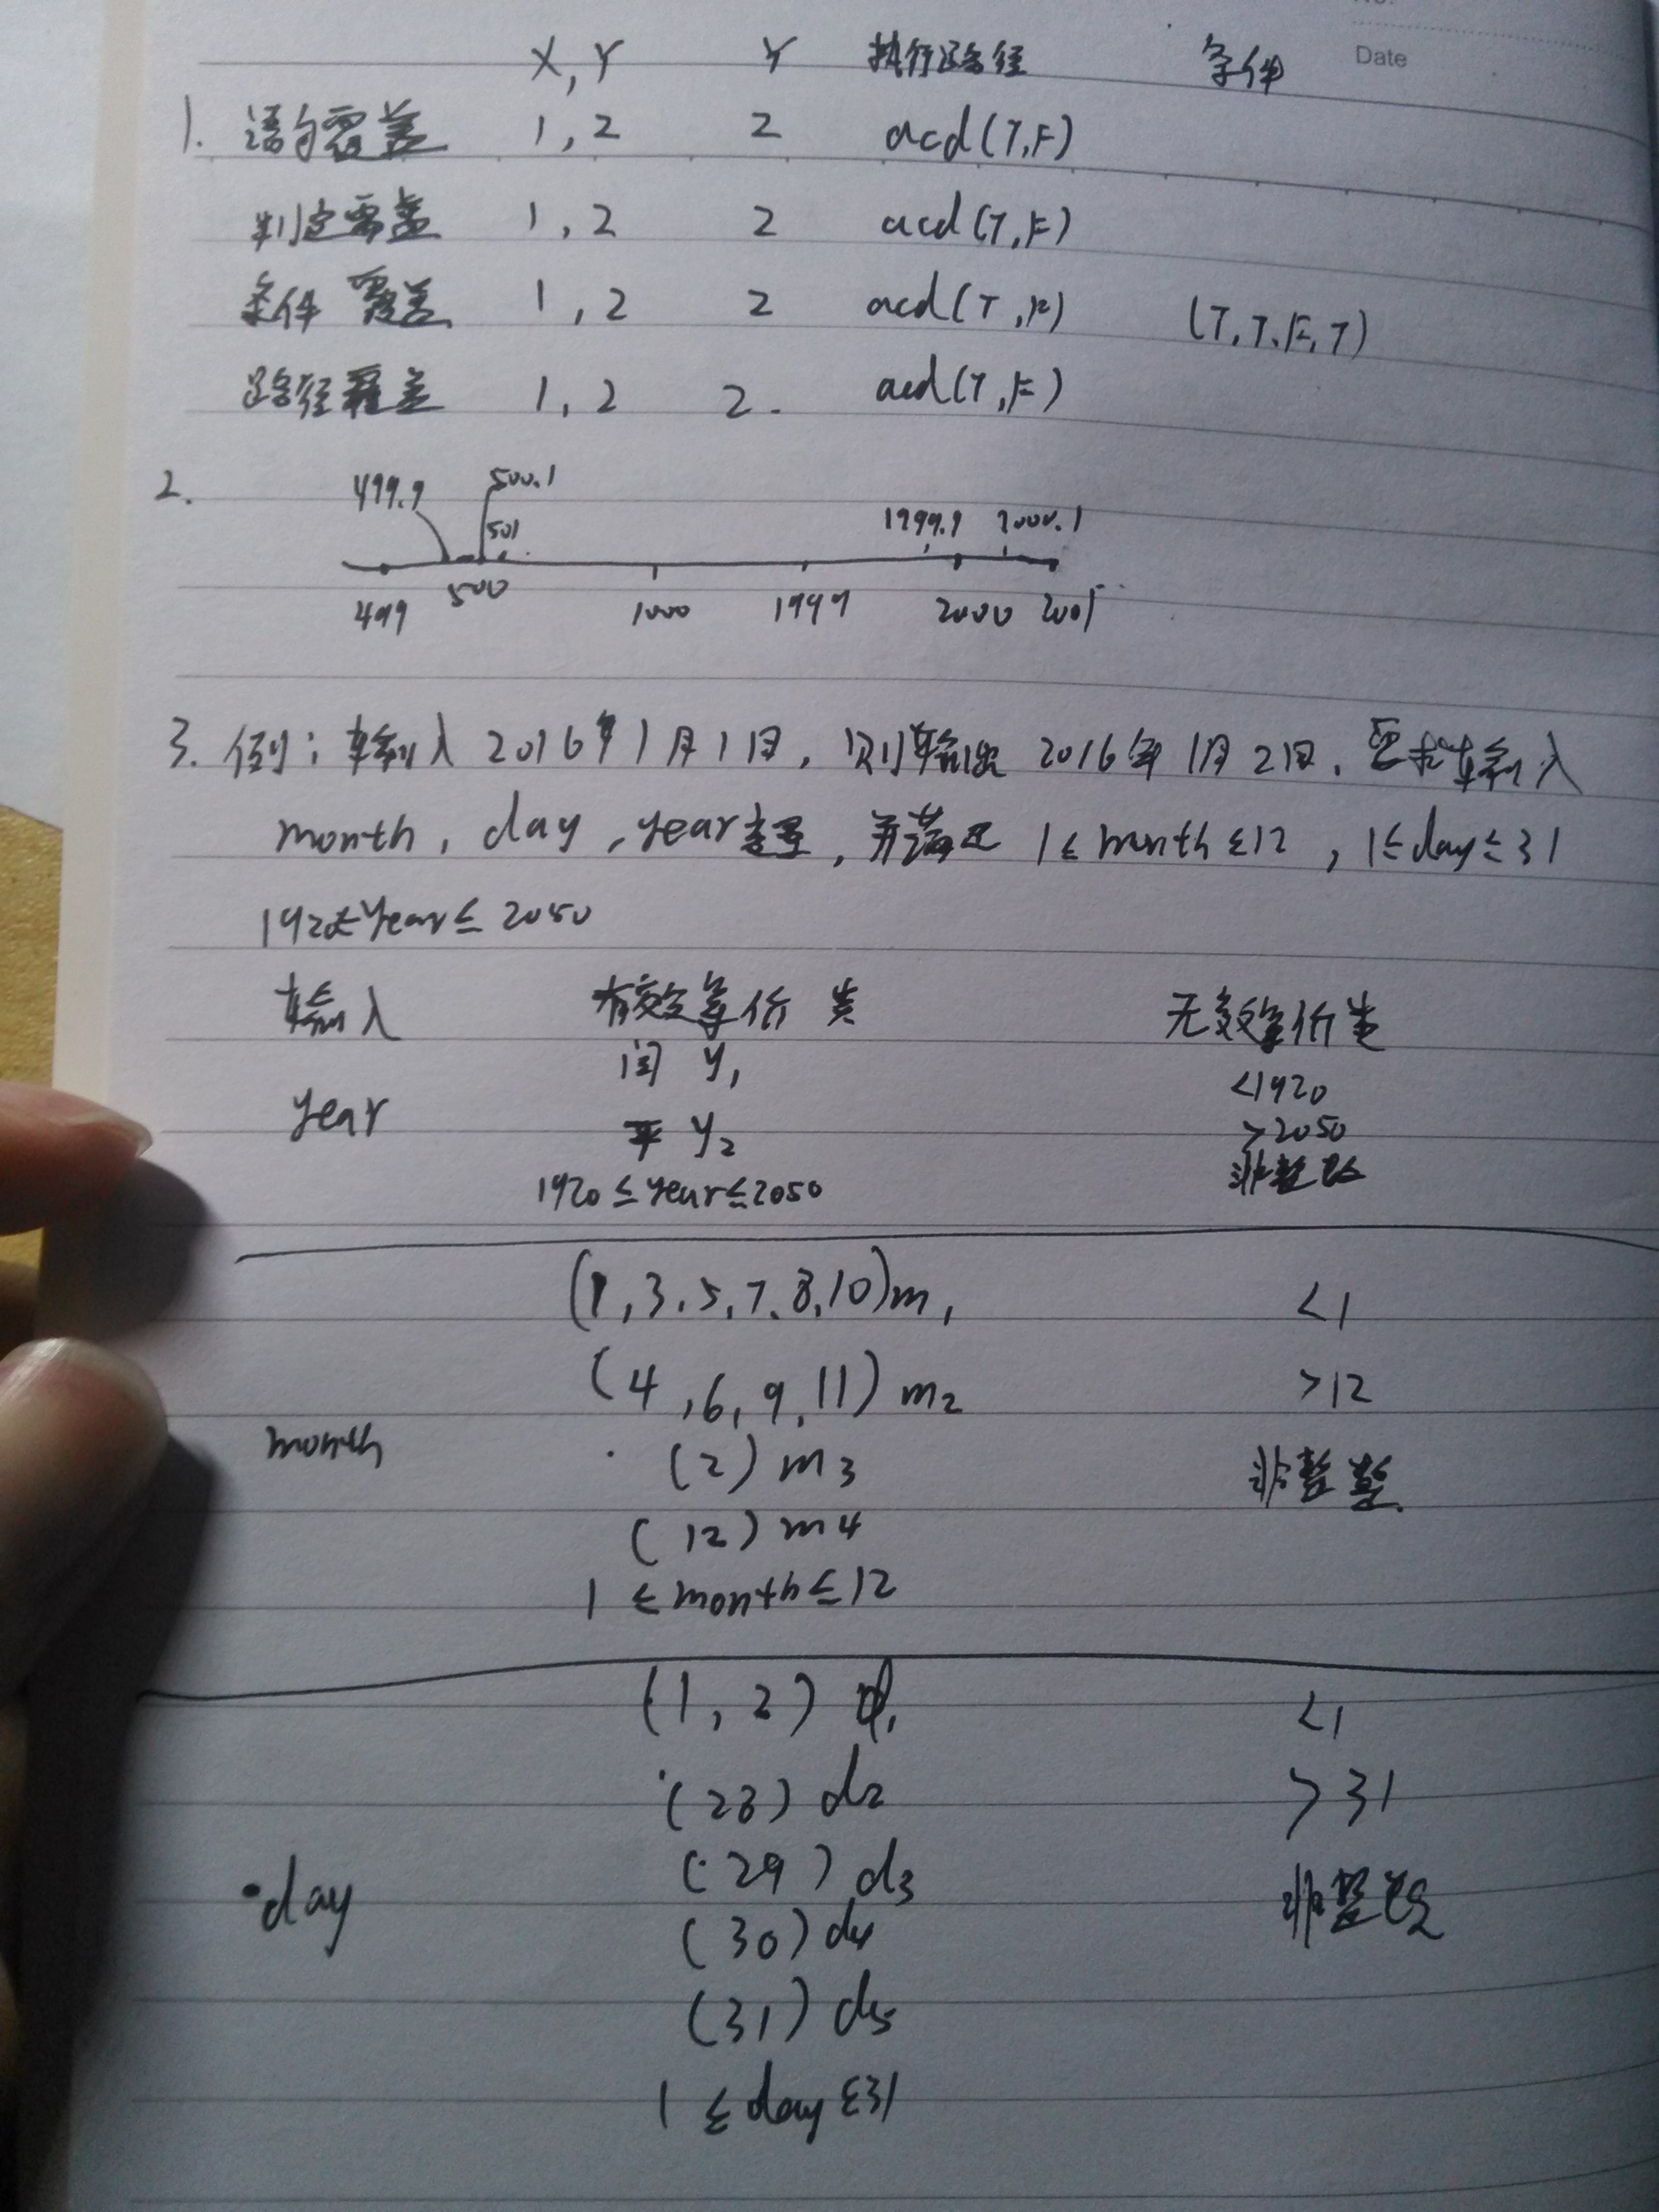 No.
Date
X, Y Y 执行路径 条件
1. 语句覆盖 1, 2 2 acd(T,F)
判定覆盖 1, 2 2 acd(T,F)
条件覆盖 1, 2 2 acd(T,F) (T,T,F,T)
路径覆盖 1, 2 2. acd(T,F)
2. 499.9 500.1
501 1999.9 2000.1
499 500 1000 1999 2000 2001
3. 例: 输入 2016年1月1日, 则输出 2016年1月2日, 要求输入
month, day, year 变量, 并满足 1≤month≤12, 1≤day≤31
1920≤year≤2050
输入 有效等价类 无效等价类
闰 y1 <1920
year 平 y2 >2050
1920≤year≤2050 非整数
(1,3,5,7,8,10)m1 <1
(4,6,9,11) m2 >12
month (2) m3 非整数
(12) m4
1≤month≤12
(1,2) d1 <1
(28) d2 >31
day (29) d3 非整数
(30) d4
(31) d5
1≤day≤31